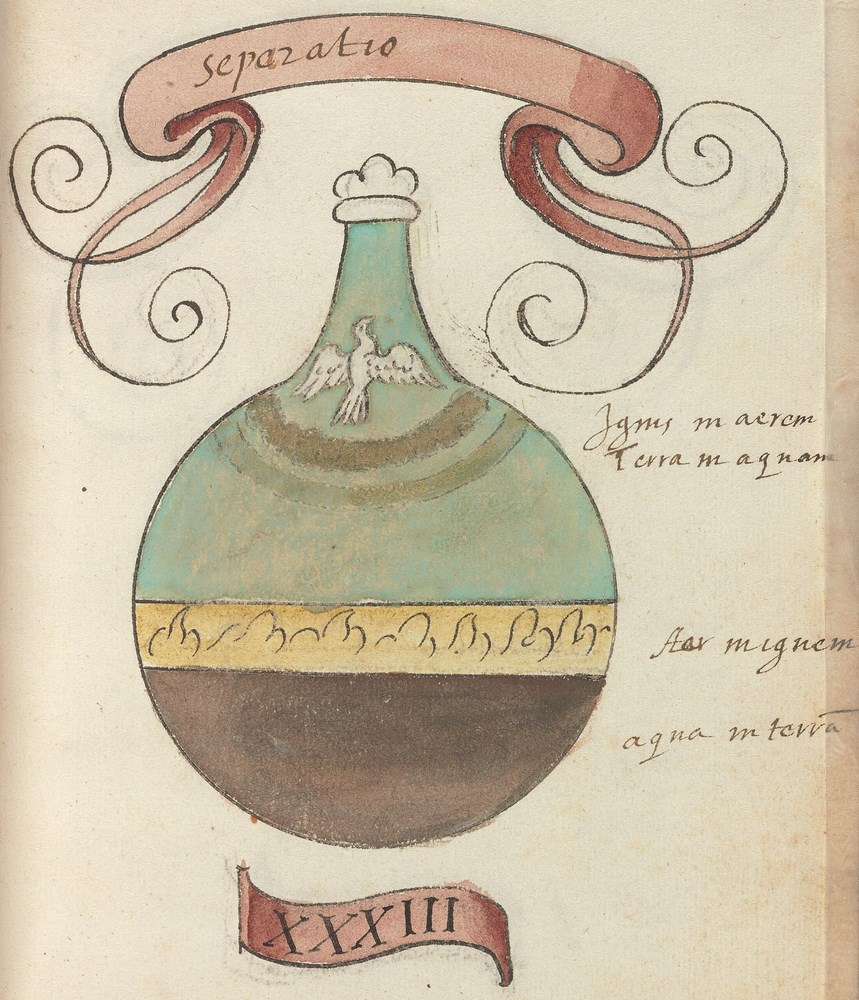 separatio
Ignis in aerem
Terra in aquam
Aer in ignem
aqua in terrã
XXXIII